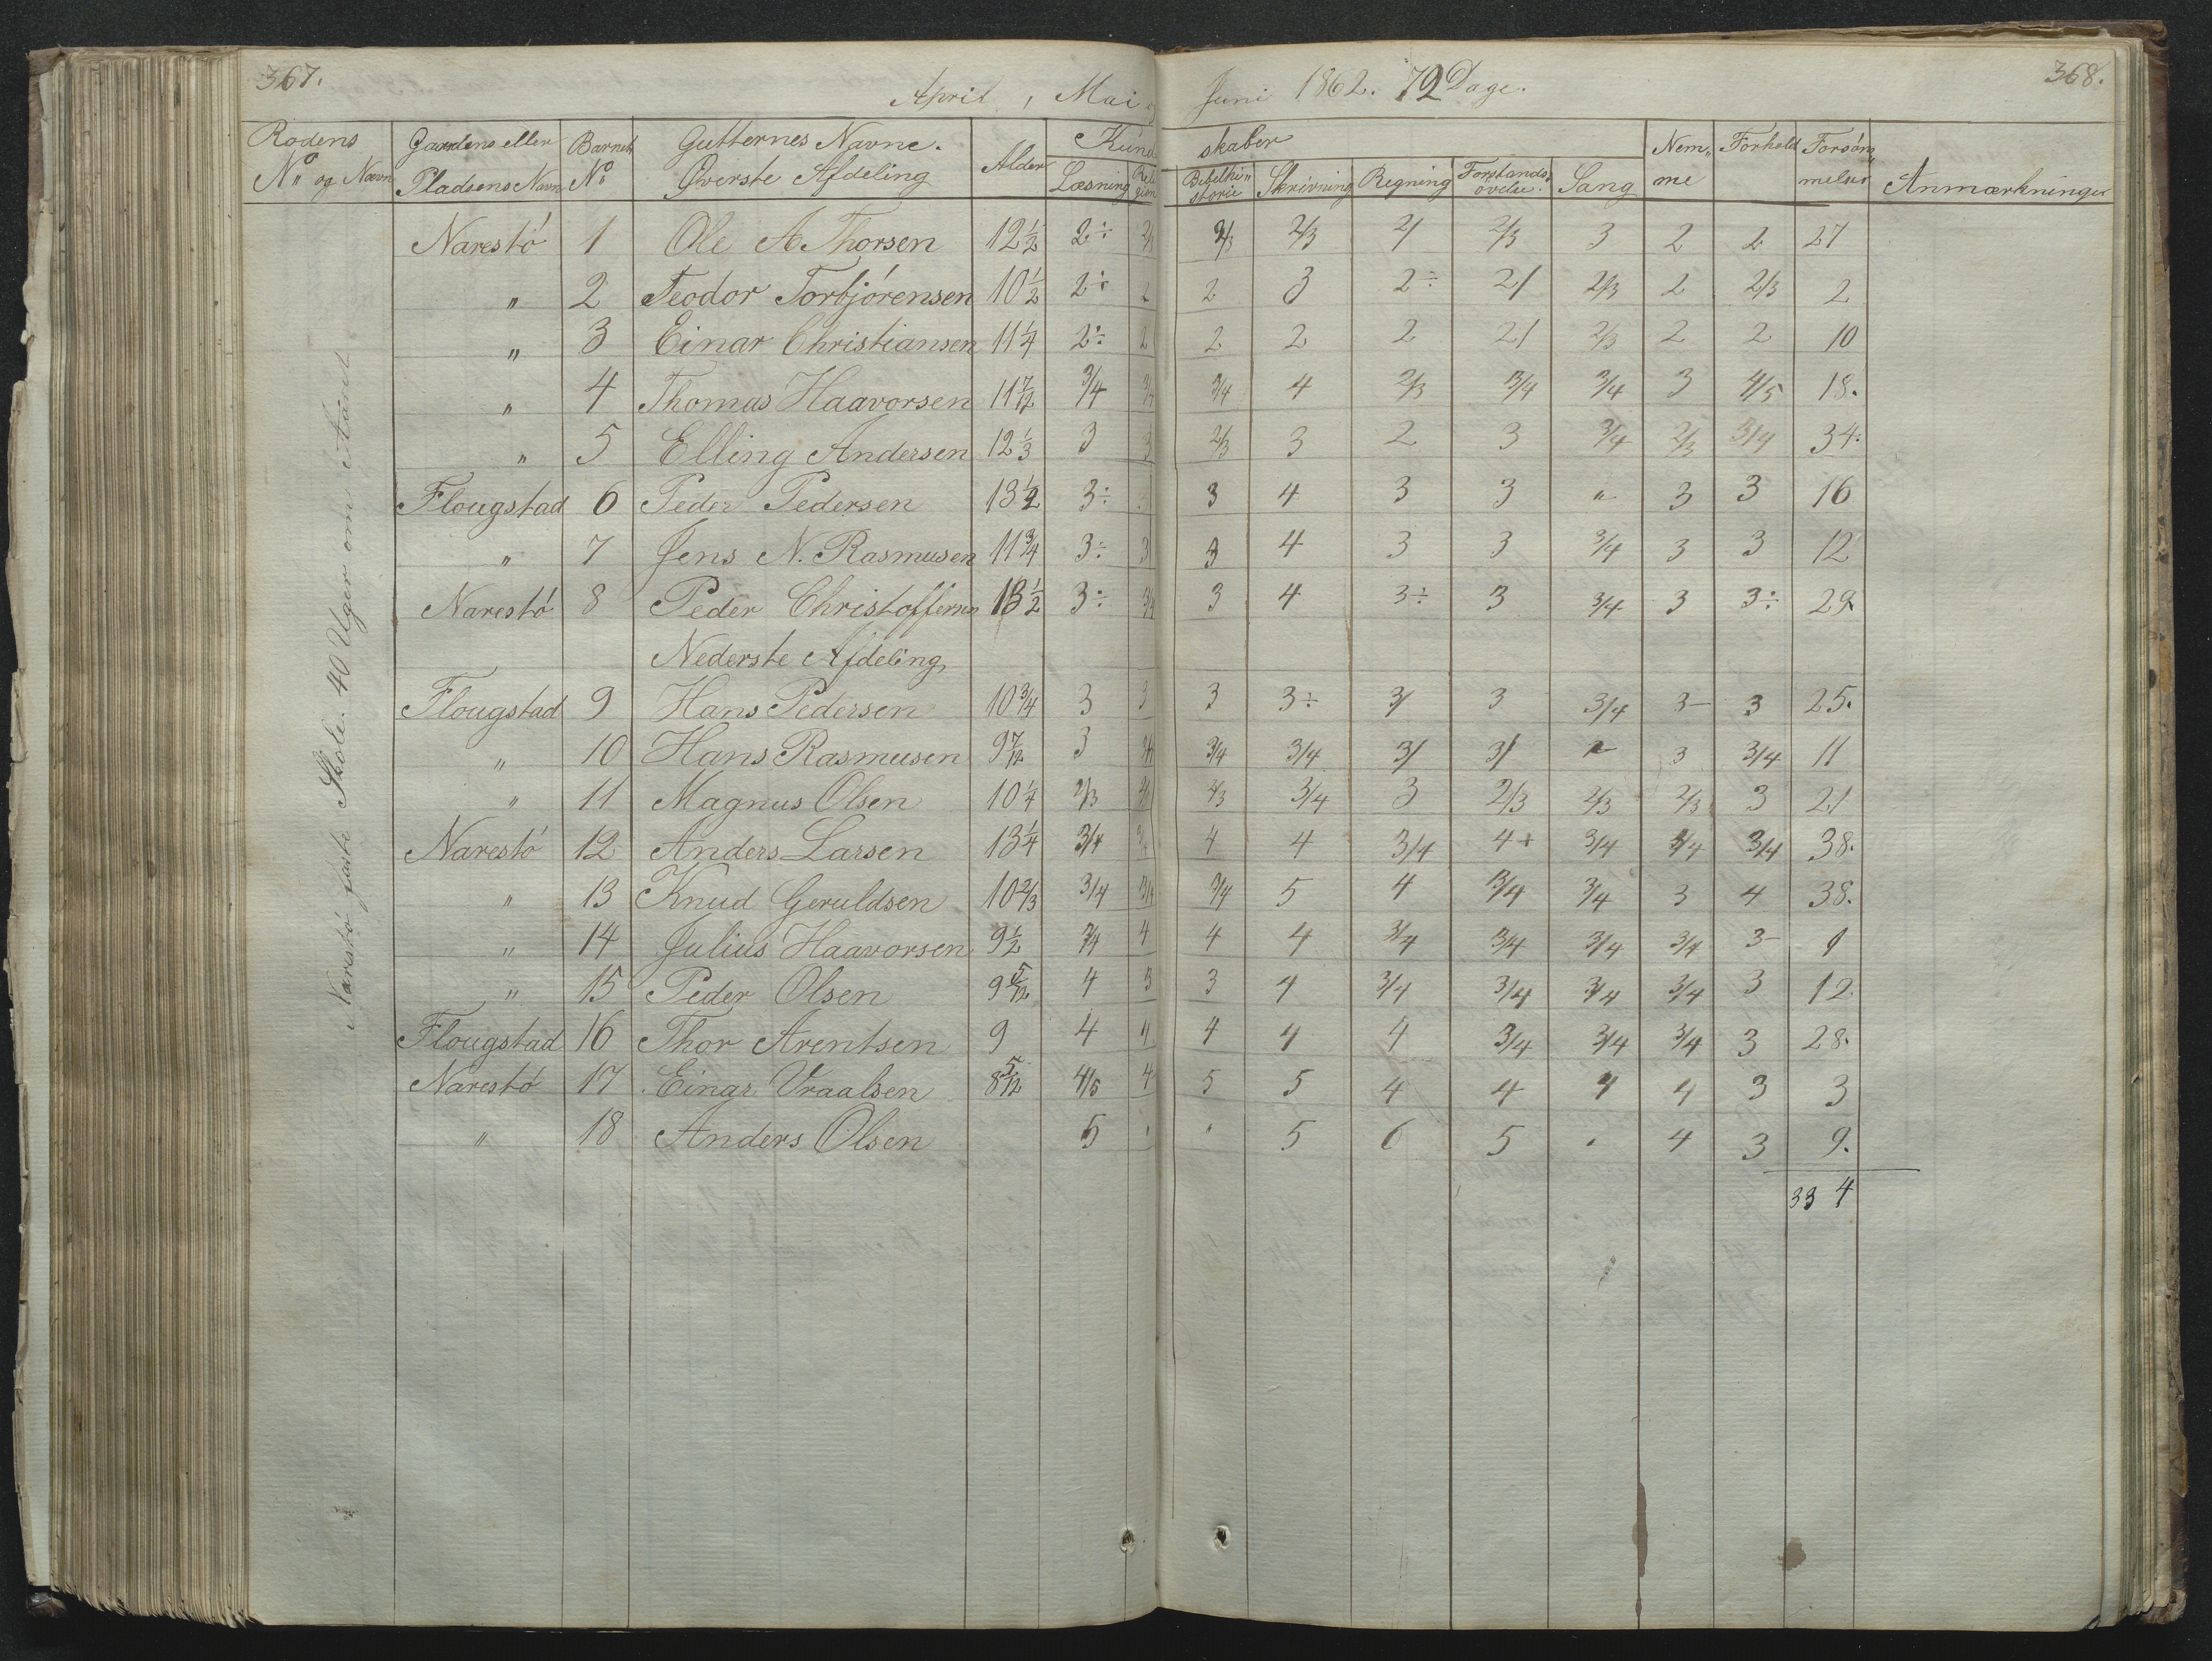 367.
368.
April, Mai og Juni 1862. 72 Dage.
Rodens No og Navn | Gaardens eller Pladsens Navn | Barnets No | Gutternes Navne. Øverste Afdeling | Alder | Kundskaber | Nemme | Forhold | Forsømmelser | Anmærkninger
Læsning | Religion | Bibelhistorie | Skrivning | Regning | Forstandsøvelse. | Sang
Narestö faste Skole. 40 Uger om Aaret
Narestö 1 Ole A Thorsen 12½ 2÷ 2/3 2/3 2/3 2/ 2/3 3 2 2 27
" 2 Teodor Torbjörensen 10½ 2÷ 2 2 3 2÷ 2/ 2/3 2 2/3 2
" 3 Einar Christiansen 11¼ 2÷ 2 2 2 2 2/ 2/3 2 2 10
" 4 Thomas Haavorsen 11 7/12 3/4 3/4 3/4 4 2/3 3/4 3/4 3 4/5 18.
" 5 Elling Andersen 12⅓ 3 3 2/3 3 2 3 3/4 2/3 3/4 34.
Flougstad 6 Peder Pedersen 13½ 3÷ 3 4 3 3 " 3 3 16
" 7 Jens N. Rasmusen 11¾ 3÷ 3 3 4 3 3 3/4 3 3 12
Narestö 8 Peder Christoffersen 13½ 3÷ 3/4 3 4 3÷ 3 3/4 3 3÷ 29
Nederste Afdeling
Flougstad 9 Hans Pedersen 10¾ 3 3 3 3÷ 3/ 3 3/4 3- 3 25.
" 10 Hans Rasmusen 9 7/12 3 3/4 3/4 3/4 3/ 3/ " 3 3/4 11
" 11 Magnus Olsen 10¼ 2/3 2/3 2/3 3/4 3 2/3 2/3 2/3 3 21
Narestö 12 Anders Larsen 13¼ 3/4 3/4 4 4 3/4 4+ 3/4 3/4 3/4 38.
" 13 Knud Geruldsen 10⅔ 3/4 3/4 3/4 5 4 3/4 3/4 3 4 38.
" 14 Julius Haavorsen 9½ 3/4 4 4 4 3/4 3/4 3/4 3/4 3-
" 15 Peder Olsen 9 5/12 4 3 3 4 3/4 3/4 3/4 3/4 3 12
Flougstad 16 Thor Arentsen 9 4 4 4 4 4 3/4 3/4 3/4 3 28.
Narestö 17 Einar Vraalsen 8 5/12 4/5 4 5 5 4 4 4 4 3 3
" 18 Anders Olsen 5 " " 5 6 5 " 4 3 9.
334